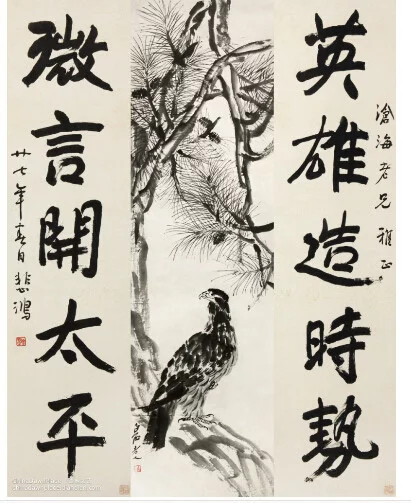 英雄造時勢
滄海老兄雅正
微言開太平
廿七年春日悲鴻
白石老人